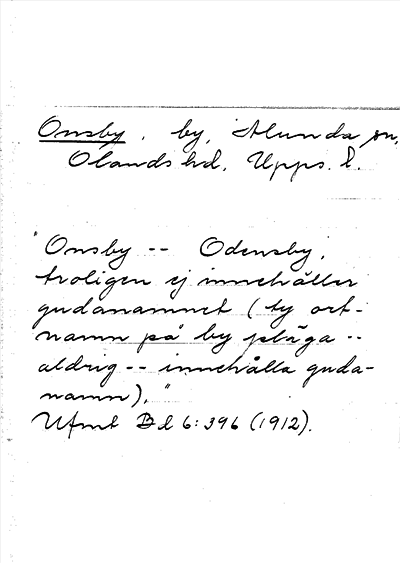 Onsby, by, Alunda sn,
Olands hd, Upps. l.
"Onsby -- Odensby,
troligen ej innehåller
gudanamnet (ty ort-
namn på by pläga --
aldrig -- innehålla guda-
namn)."
Ufmt Bd 6:396 (1912).